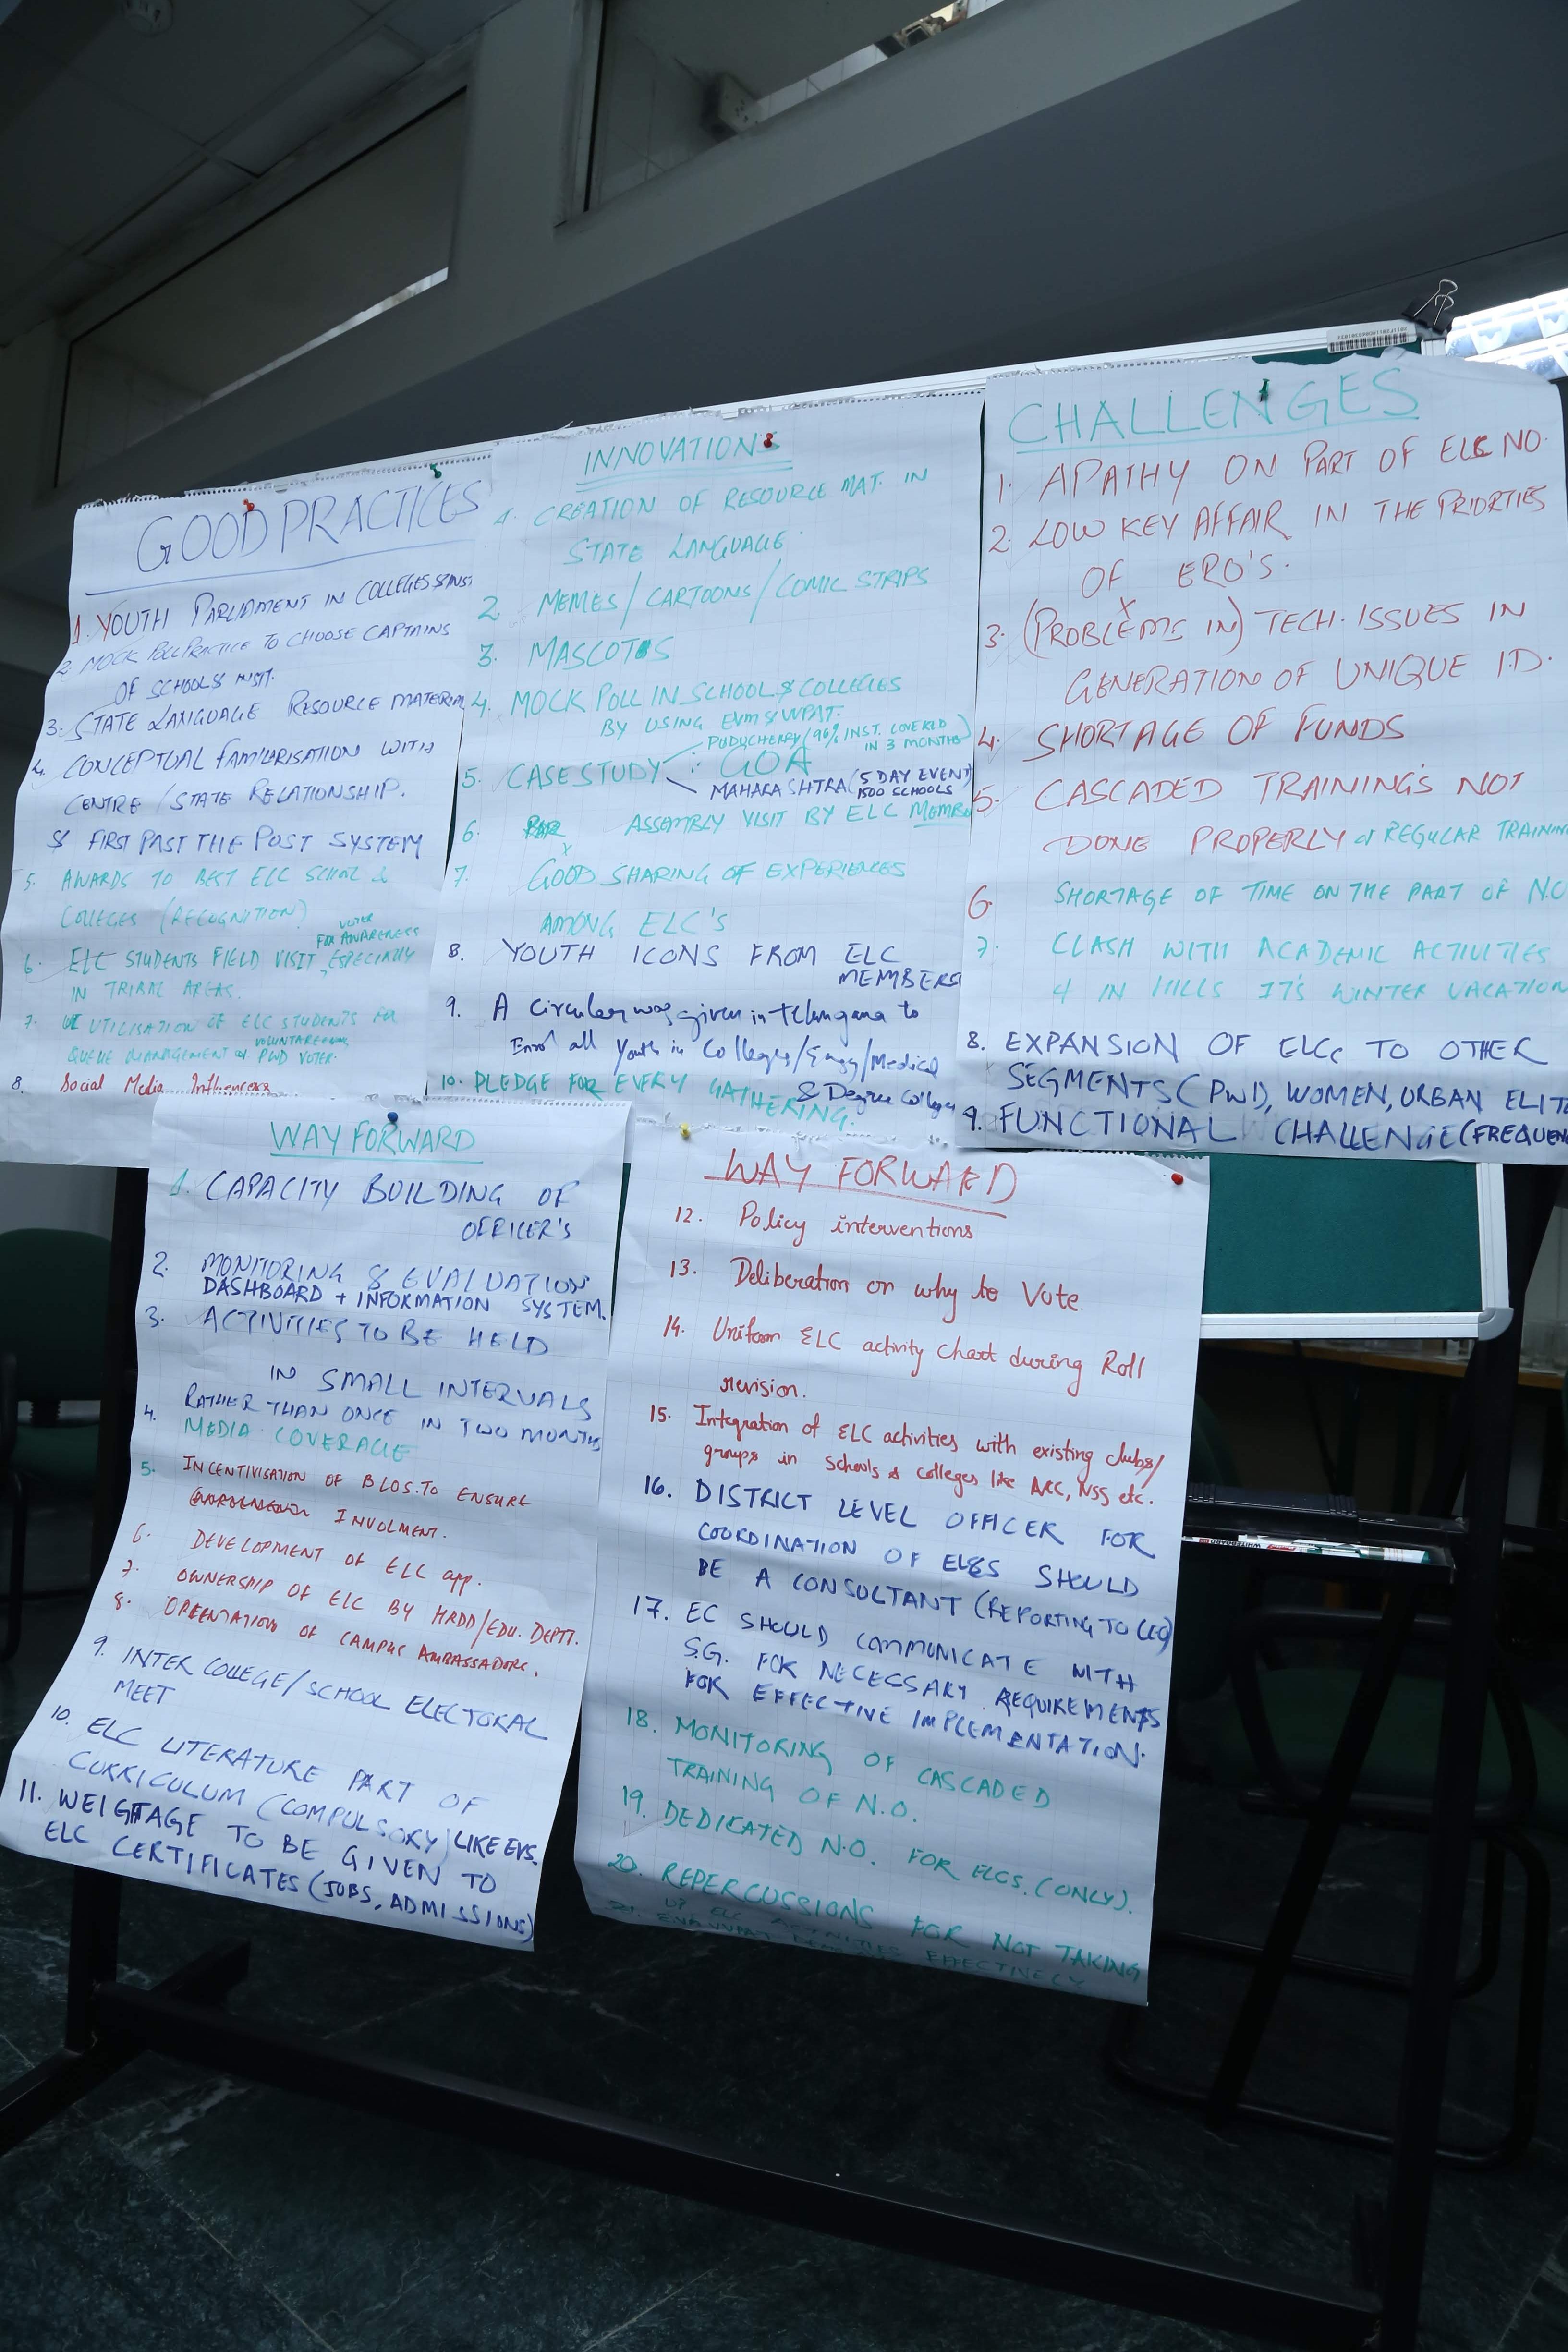 GOOD PRACTICES
1. YOUTH PARLIAMENT IN COLLEGES & INST
2. MOCK POLL PRACTICE TO CHOOSE CAPTAINS
OF SCHOOLS & INSTT.
3. STATE LANGUAGE RESOURCE MATERIAL
4. CONCEPTUAL FAMILIARISATION WITH
CENTRE / STATE RELATIONSHIP.
& FIRST PAST THE POST SYSTEM
5. AWARDS TO BEST ELC SCHOOL &
COLLEGES (RECOGNITION)
VOTER
FOR AWARENESS
6. ELC STUDENTS FIELD VISIT, ESPECIALLY
IN TRIBAL AREAS.
7. UTILISATION OF ELC STUDENTS FOR
QUEUE MANAGEMENT PWD VOTER.
8. Social Media Influencers
INNOVATIONS
1. CREATION OF RESOURCE MAT. IN
STATE LANGUAGE.
2. MEMES / CARTOONS / COMIC STRIPS
3. MASCOTS
4. MOCK POLL IN SCHOOL & COLLEGES
BY USING EVM & VVPAT.
: PUDUCHERRY (96% INST. COVERED
IN 3 MONTHS)
5. CASE STUDY : GOA
MAHARASHTRA (5 DAY EVENT)
1500 SCHOOLS
6. ASSEMBLY VISIT BY ELC MEMBE
7. GOOD SHARING OF EXPERIENCES
AMONG ELC'S
8. YOUTH ICONS FROM ELC
MEMBERS
9. A circular was given in telangana to
Enrol all Youth in Colleges/Engg/Medical
& Degree Colleges
10. PLEDGE FOR EVERY GATHERING.
CHALLENGES
1. APATHY ON PART OF ELC NO.
2. LOW KEY AFFAIR IN THE PRIORTIES
OF ERO'S.
3. (PROBLEMS IN) TECH. ISSUES IN
GENERATION OF UNIQUE I.D.
4. SHORTAGE OF FUNDS
5. CASCADED TRAININGS NOT
DONE PROPERLY or REGULAR TRAINING
6. SHORTAGE OF TIME ON THE PART OF N.O
7. CLASH WITH ACADEMIC ACTIVITIES
4 IN HILLS IT'S WINTER VACATION
8. EXPANSION OF ELCs TO OTHER
SEGMENTS (PWD), WOMEN, URBAN ELIT
9. FUNCTIONAL CHALLENGE (FREQUEN
WAY FORWARD
1. CAPACITY BUILDING OF
OFFICER'S
2. MONITORING & EVALUATION
DASHBOARD + INFORMATION SYSTEM.
3. ACTIVITIES TO BE HELD
IN SMALL INTERVALS
RATHER THAN ONCE IN TWO MONTHS
4. MEDIA COVERAGE
5. INCENTIVISATION OF BLOS. TO ENSURE
INVOLMENT.
6. DEVELOPMENT OF ELC app.
7. OWNERSHIP OF ELC BY HRDD/EDU. DEPTT.
8. ORIENTATION OF CAMPUS AMBASSADORS.
9. INTER COLLEGE/SCHOOL ELECTORAL
MEET
10. ELC LITERATURE PART OF
CURRICULUM (COMPULSORY) LIKE EVS.
11. WEIGHTAGE TO BE GIVEN TO
ELC CERTIFICATES (JOBS, ADMISSIONS)
WAY FORWARD
12. Policy interventions
13. Deliberation on why to Vote
14. Uniform ELC activity chart during Roll
revision.
15. Integration of ELC activities with existing clubs/
groups in schools & colleges like ARC, NSS etc.
16. DISTRICT LEVEL OFFICER FOR
COORDINATION OF ELCS SHOULD
BE A CONSULTANT (REPORTING TO CEO)
17. EC SHOULD COMMUNICATE WITH
S.G. FOR NECESSARY REQUIREMENTS
FOR EFFECTIVE IMPLEMENTATION.
18. MONITORING OF CASCADED
TRAINING OF N.O.
19. DEDICATED N.O. FOR ELCS. (ONLY).
20. REPERCUSSIONS FOR NOT TAKING
UP ELC ACTIVITIES EFFECTIVELY
21. EVM VVPAT